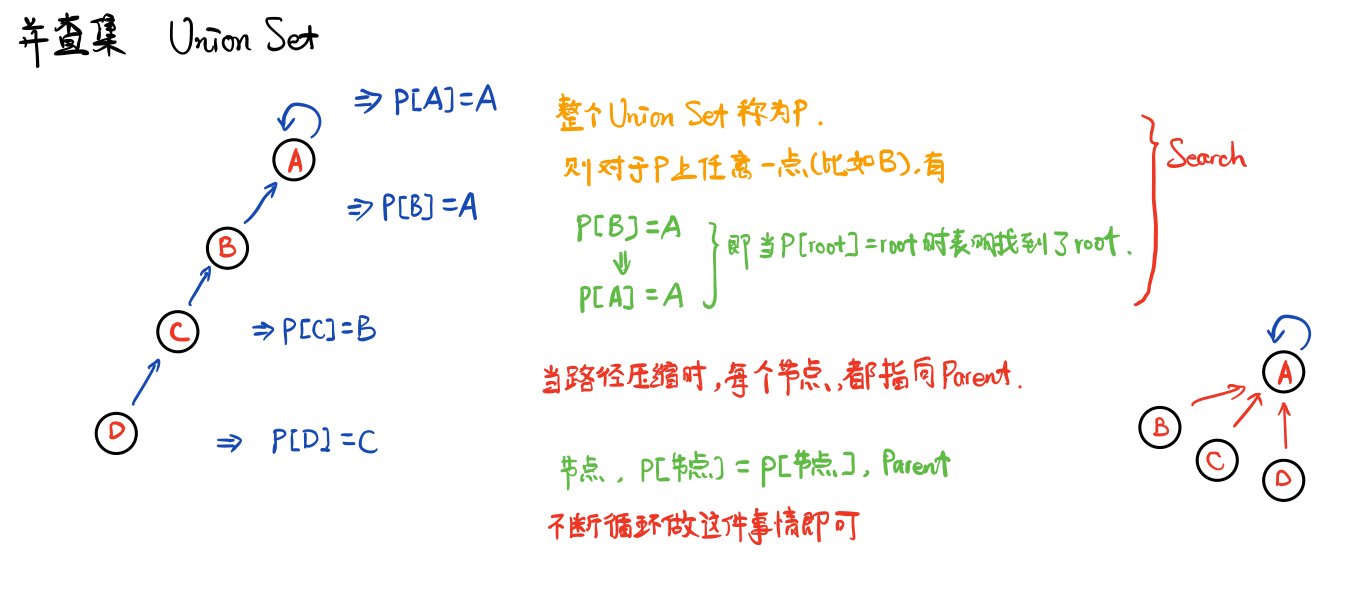 并查集 Union Set
⇒ P[A]=A
A
⇒ P[B]=A
B
⇒ P[C]=B
C
⇒ P[D]=C
D
整个Union Set 称为P.
则对于P上任意一点(比如B).有
P[B]=A
⇓
P[A]=A
即当P[root]=root时表明找到了root.
Search
当路径压缩时,每个节点、都指向Parent.
节点. P[节点]=P[节点]. Parent
不断循环做这件事情即可
A
B
C
D